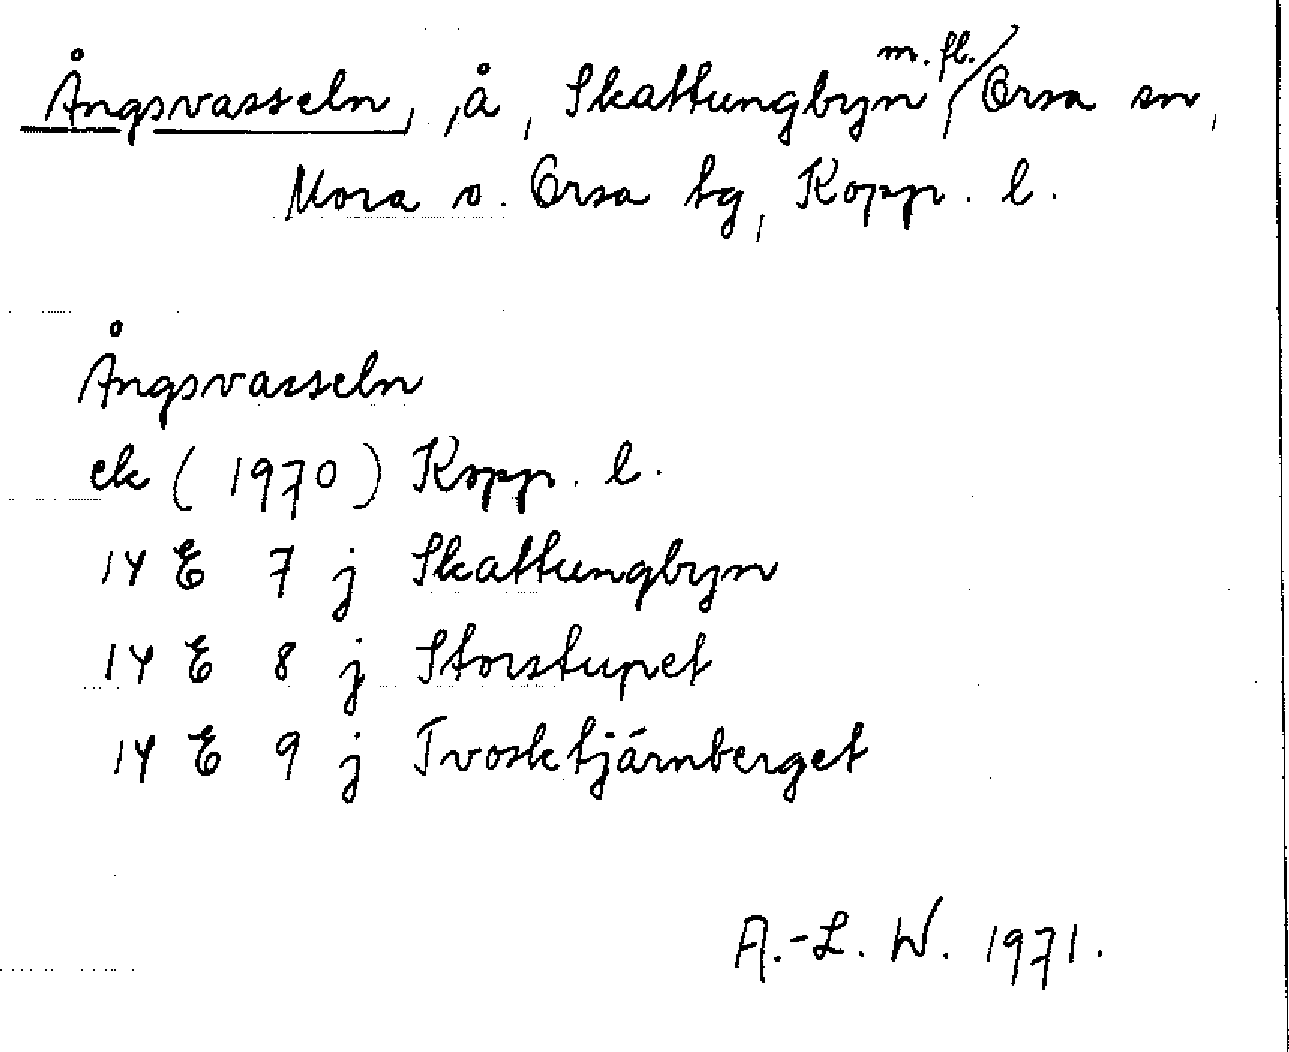 Ångsvasseln, å, Skattungbyn m.fl., Orsa sn,
Mora o. Orsa tg, Kopp. l.
Ångsvasseln
ek (1970) Kopp. l.
14 E 7 j Skattungbyn
14 E 8 j Storstupet
14 E 9 j Tvosktjárnberget
A.-L. W. 1971.